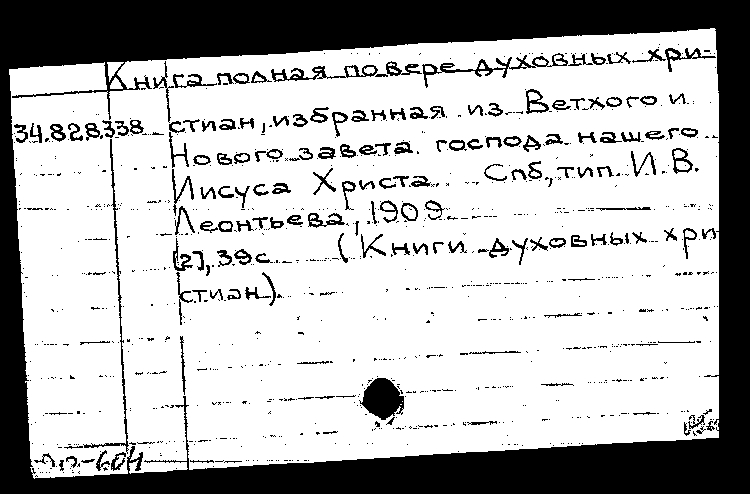 Книга полная по вере духовных хри-
34.828338 стиан, избранная из Ветхого и
Нового завета господа нашего
Иисуса Христа. Спб., тип. И.В.
Леонтьева, 1909.
[2], 39с. (Книги духовных хри
стиан).
-604